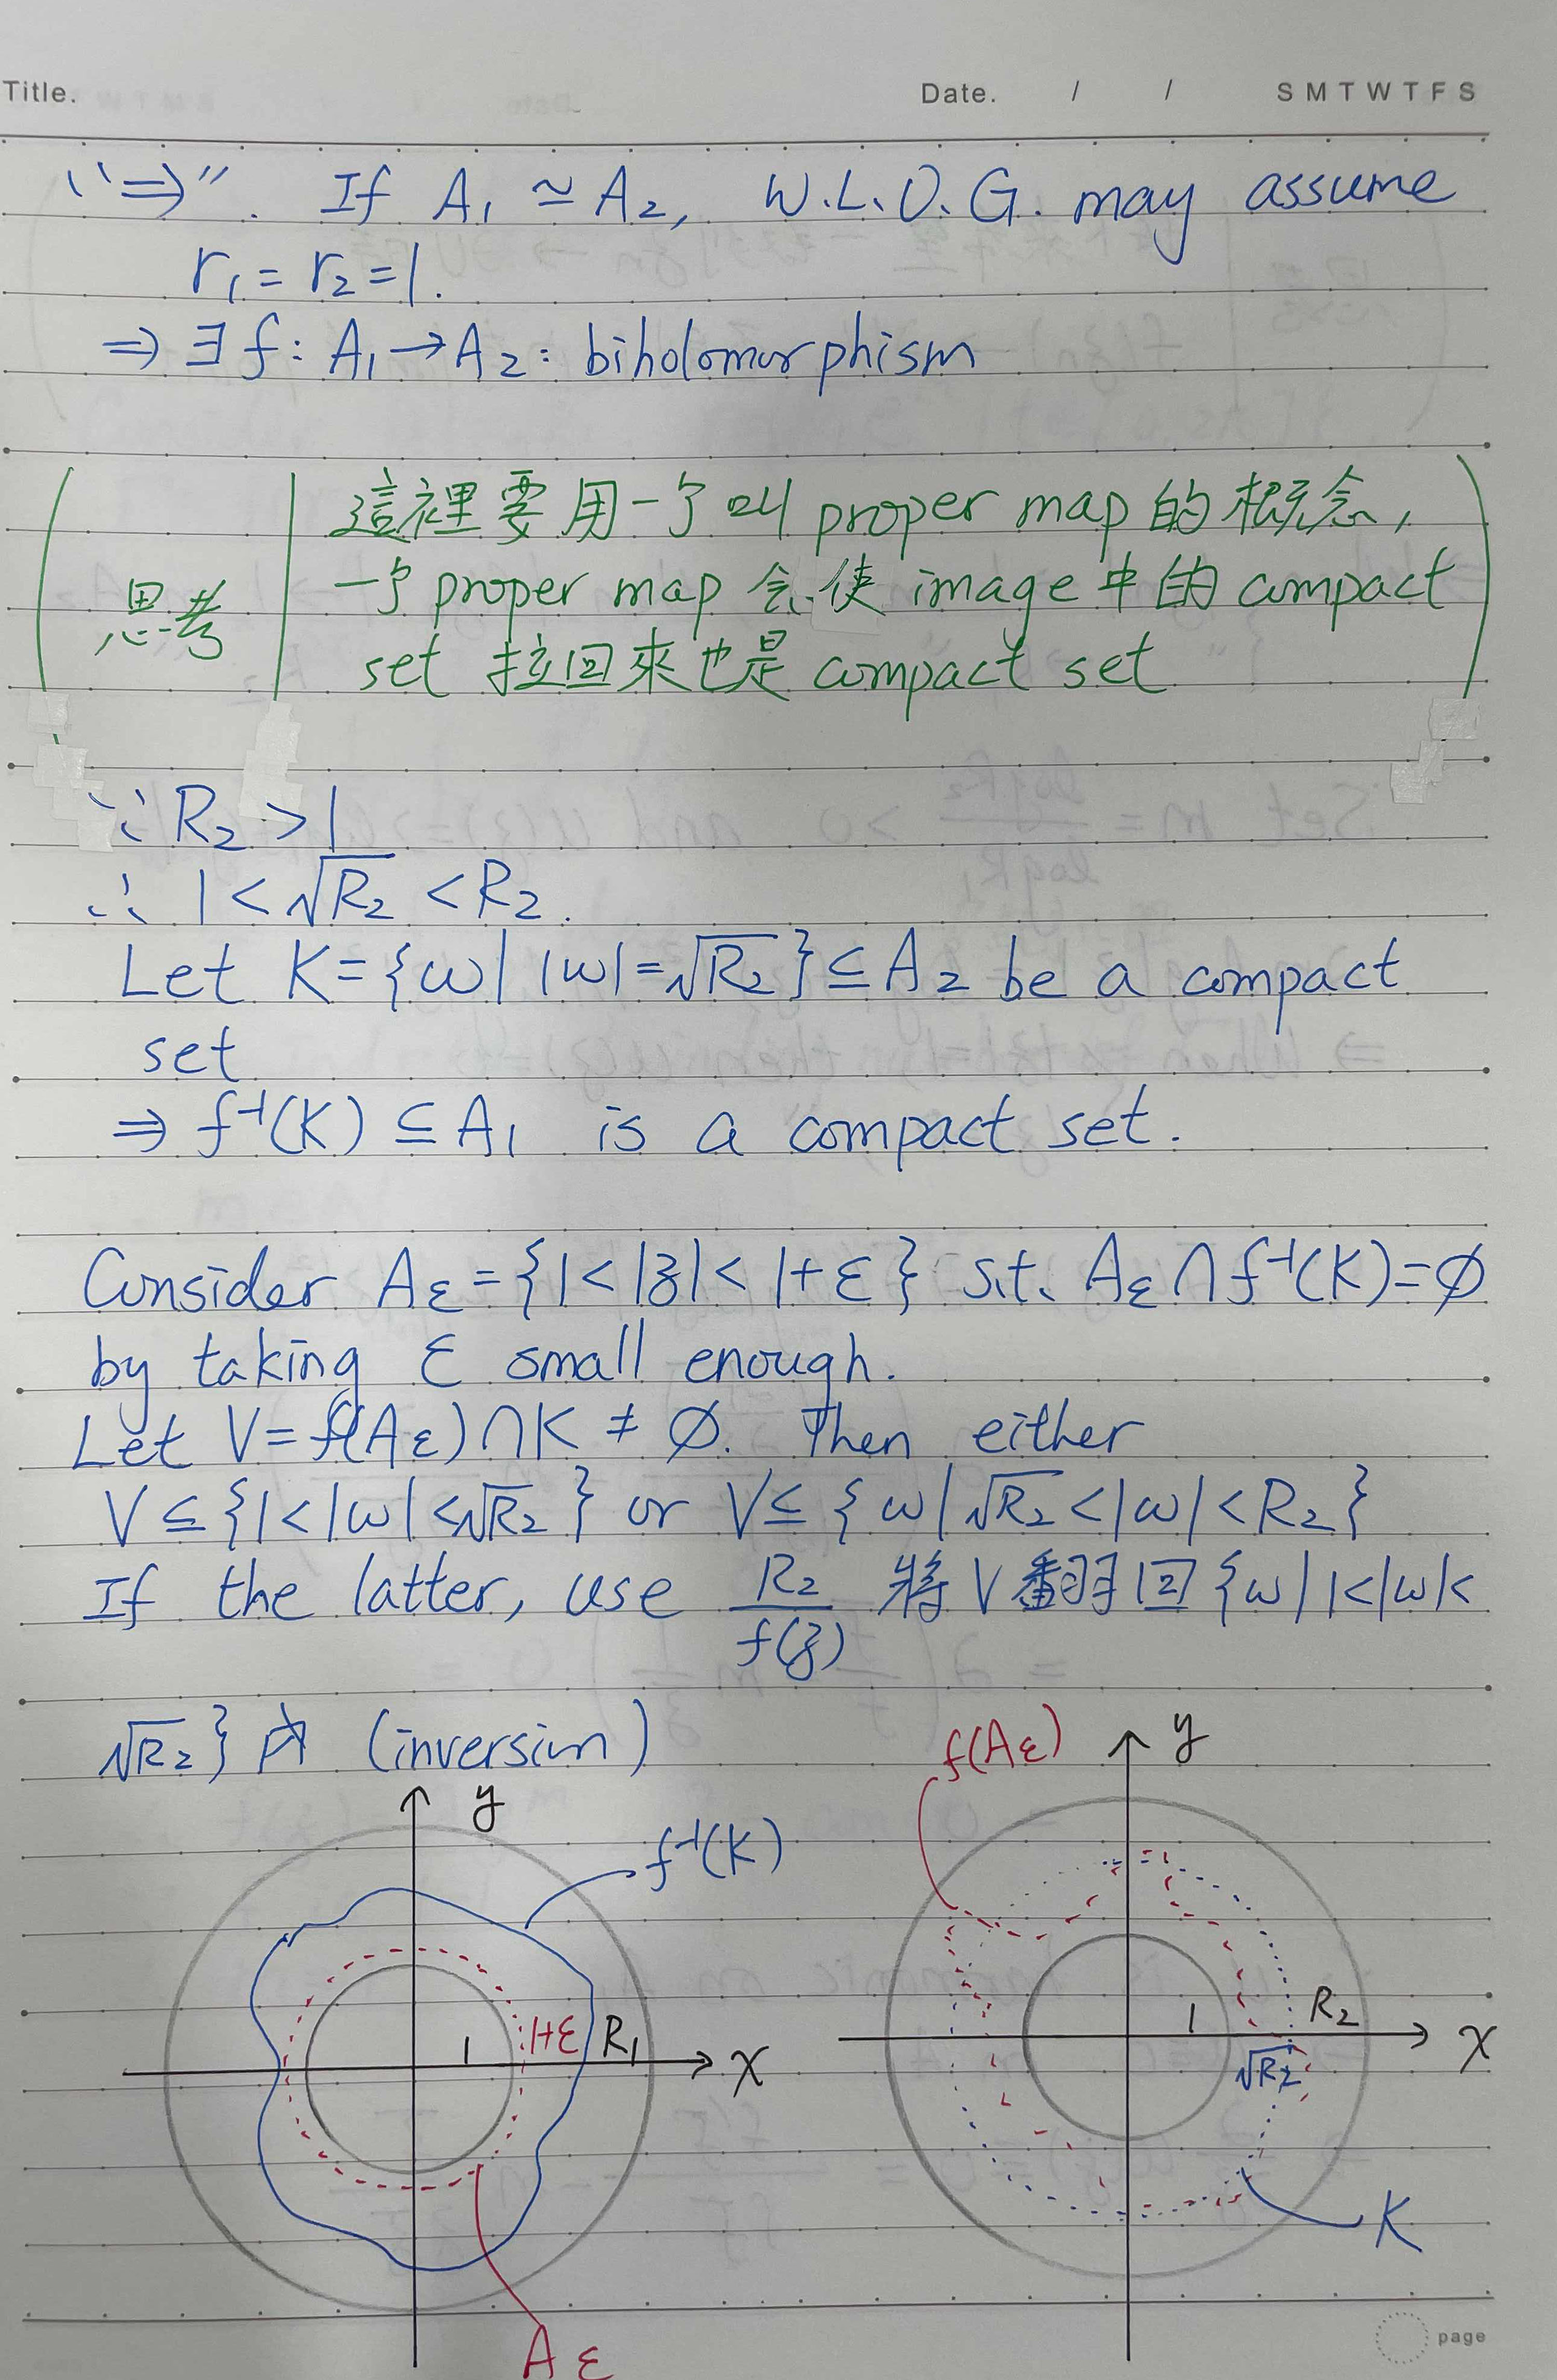 Title.
Date. / / S M T W T F S
"⇒". If A₁ ≃ A₂, W.L.O.G. may assume
r₁ = r₂ = 1.
⇒ ∃ f: A₁ → A₂: biholomorphism
思考
這裡要用一个叫 proper map 的概念,
一个 proper map 会使 image 中的 compact
set 拉回來也是 compact set
∵ R₂ > 1
∴ 1 < √R₂ < R₂.
Let K = {ω | |ω| = √R₂} ⊆ A₂ be a compact
set
⇒ f⁻¹(K) ⊆ A₁ is a compact set.
Consider Aε = {1 < |z| < 1+ε} s.t. Aε ∩ f⁻¹(K) = ∅
by taking ε small enough.
Let V = f(Aε) ∩ K ≠ ∅. Then either
V ⊆ {1 < |ω| < √R₂} or V ⊆ {ω | √R₂ < |ω| < R₂}
If the latter, use R₂/f(z) 將 V 翻回 {ω | 1 < |ω| <
√R₂} 內 (inversion)
f(Aε)
y
y
f⁻¹(K)
1
1+ε
R₁
x
1
R₂
x
√R₂
K
Aε
page